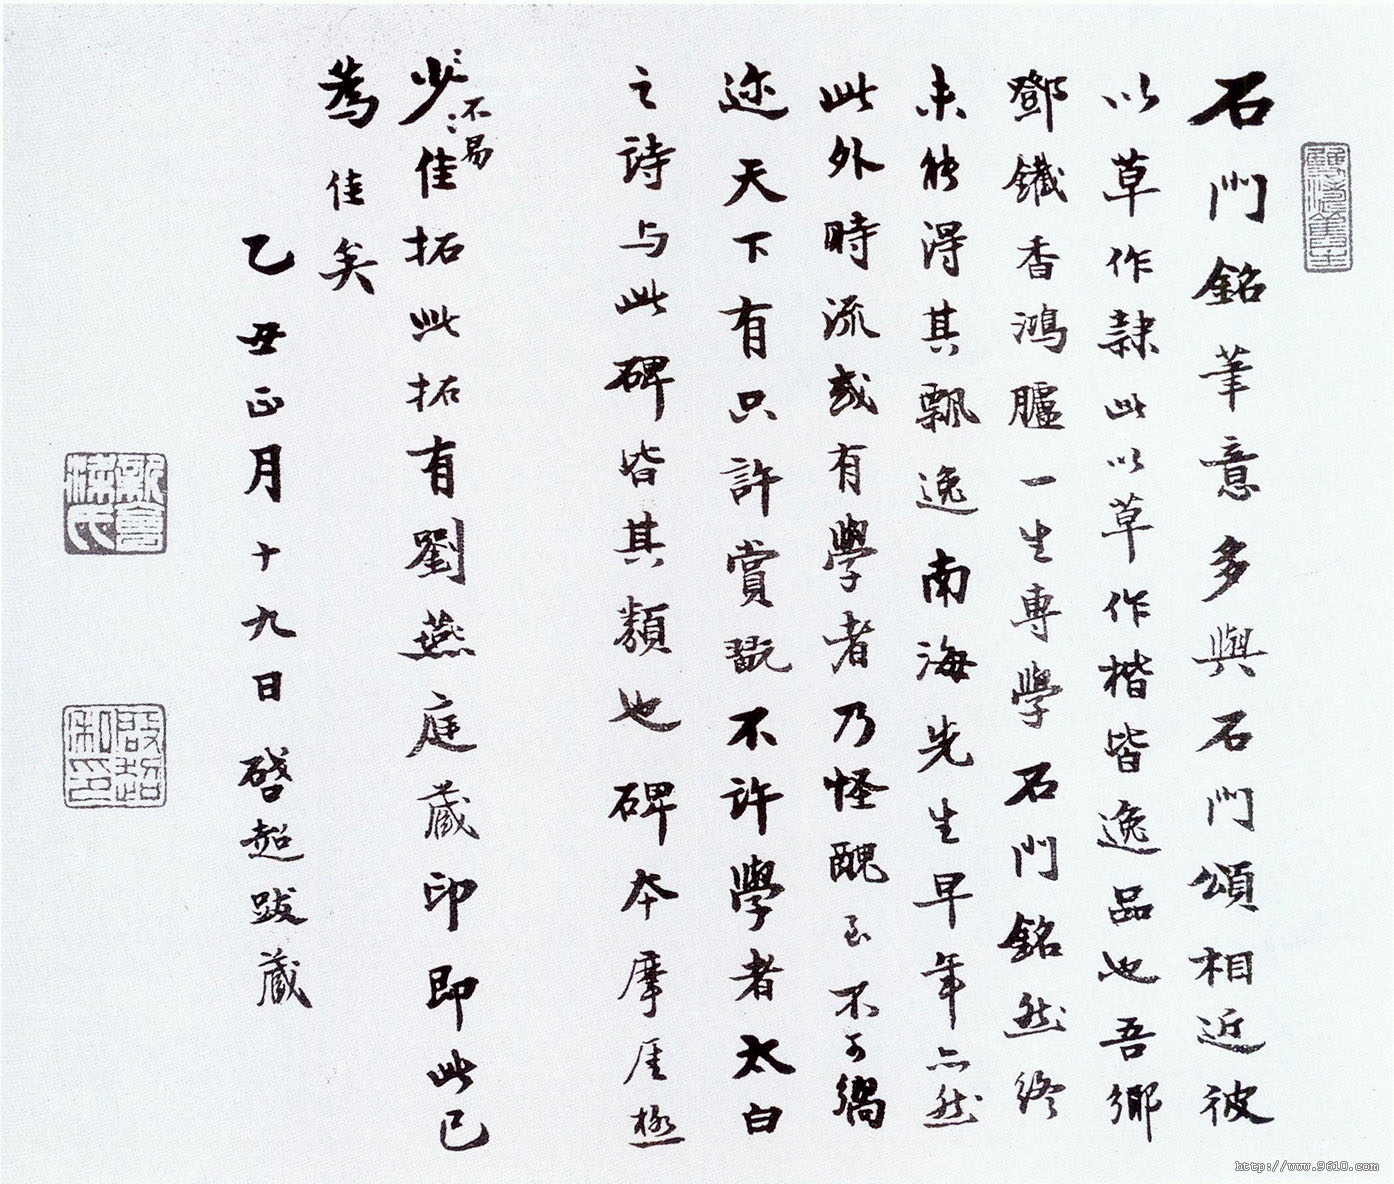 石門銘筆意多與石門頌相近彼
以草作隸此以草作楷皆逸品也吾鄉
鄧鐵香鴻臚一生專學石門銘然終
未能得其飄逸南海先生早年亦然
此外時流或有學者乃怪醜至不可嚮
迩天下有只許賞翫不許學者太白
之詩与此碑皆其類也碑本摩厓極
少不易佳拓此拓有劉燕庭藏印即此已
為佳矣
乙丑正月十九日啓超跋藏
新會梁氏
啟超私印
http://www.9610.com